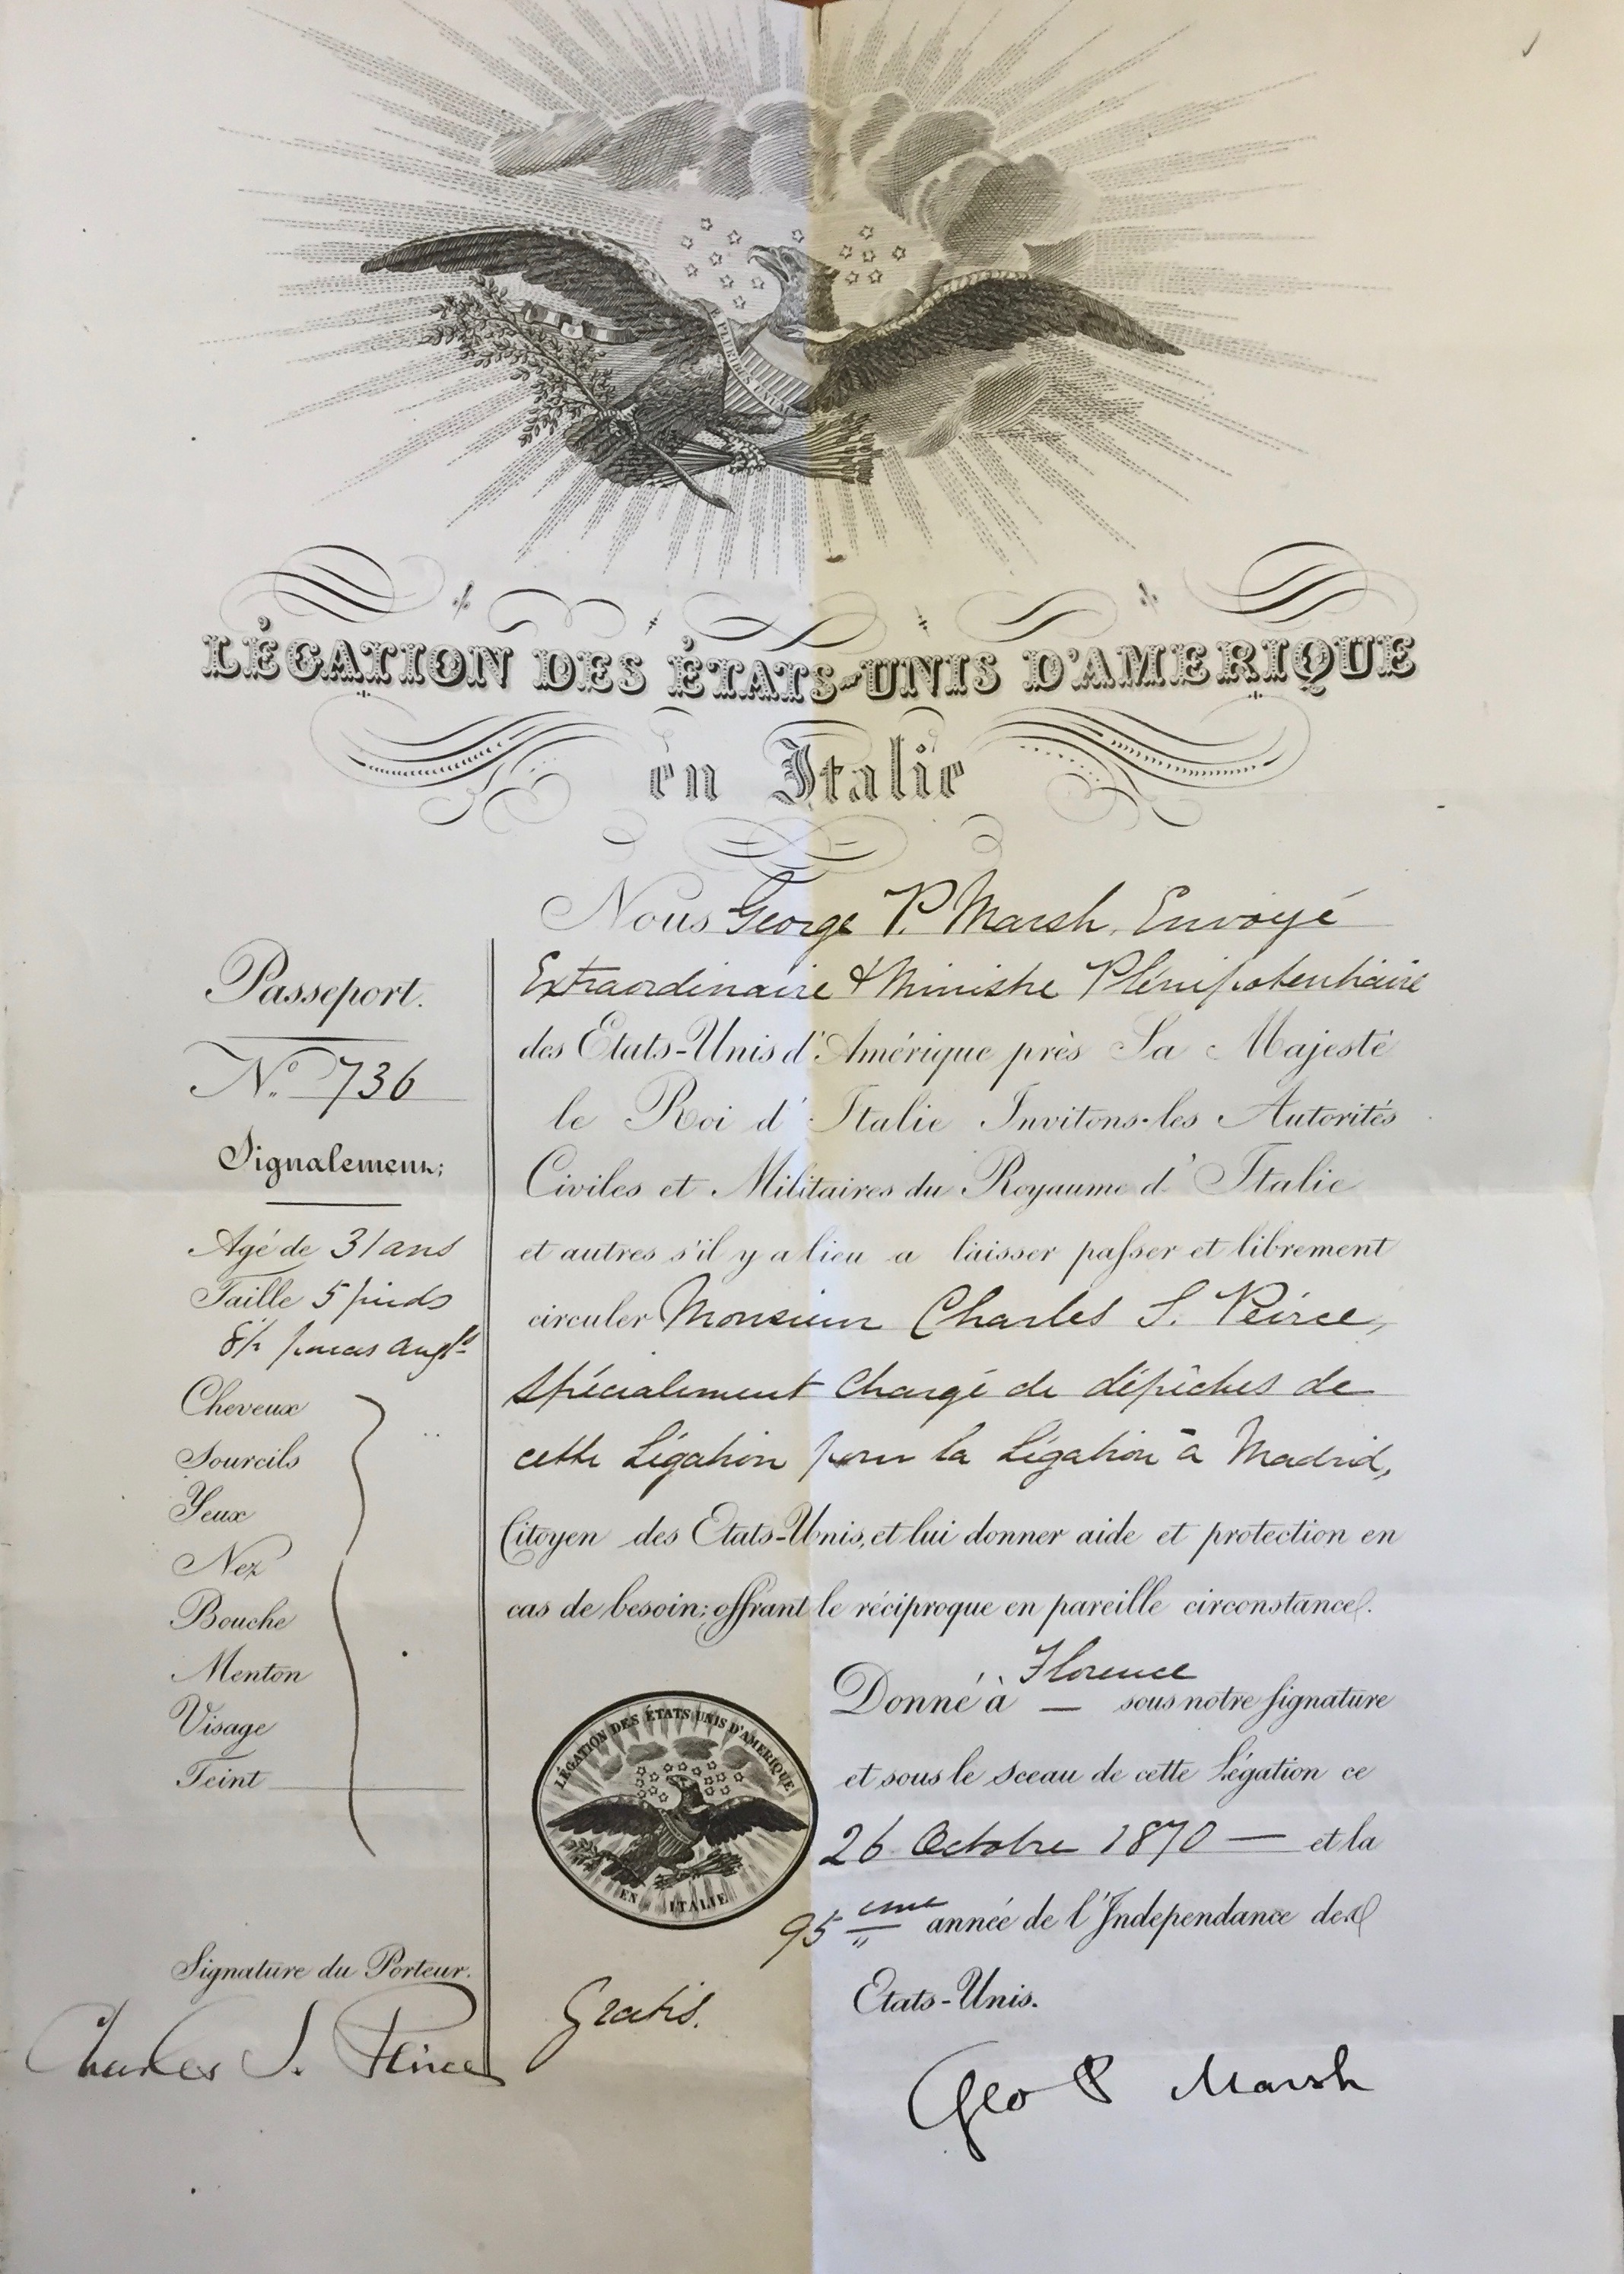 E PLURIBUS UNUM
LÉGATION DES ÉTATS-UNIS D'AMERIQUE
en Italie
Passeport.
N.º 736
Signalement:
Agé de 31 ans
Taille 5 pieds
8½ pouces angls
Cheveux
Sourcils
Yeux
Nez
Bouche
Menton
Visage
Teint
Signature du Porteur.
Charles S. Peirce
Nous George P. Marsh, Envoyé
Extraordinaire & Ministre Plénipotentiaire
des Etats-Unis d'Amérique près Sa Majesté
le Roi d'Italie Invitons-les Autorités
Civiles et Militaires du Royaume d'Italie
et autres s'il y a lieu a laisser passer et librement
circuler Monsieur Charles S. Peirce,
spécialement chargé de dépêches de
cette Légation pour la Légation à Madrid,
Citoyen des Etats-Unis, et lui donner aide et protection en
cas de besoin; offrant le réciproque en pareille circonstance.
Donné à Florence — sous notre signature
et sous le sceau de cette Légation ce
26 Octobre 1870 — et la
95 eme année de l'Independance des
Etats-Unis.
LÉGATION DES ÉTATS UNIS D'AMERIQUE
EN ITALIE
Gratis.
Geo P Marsh